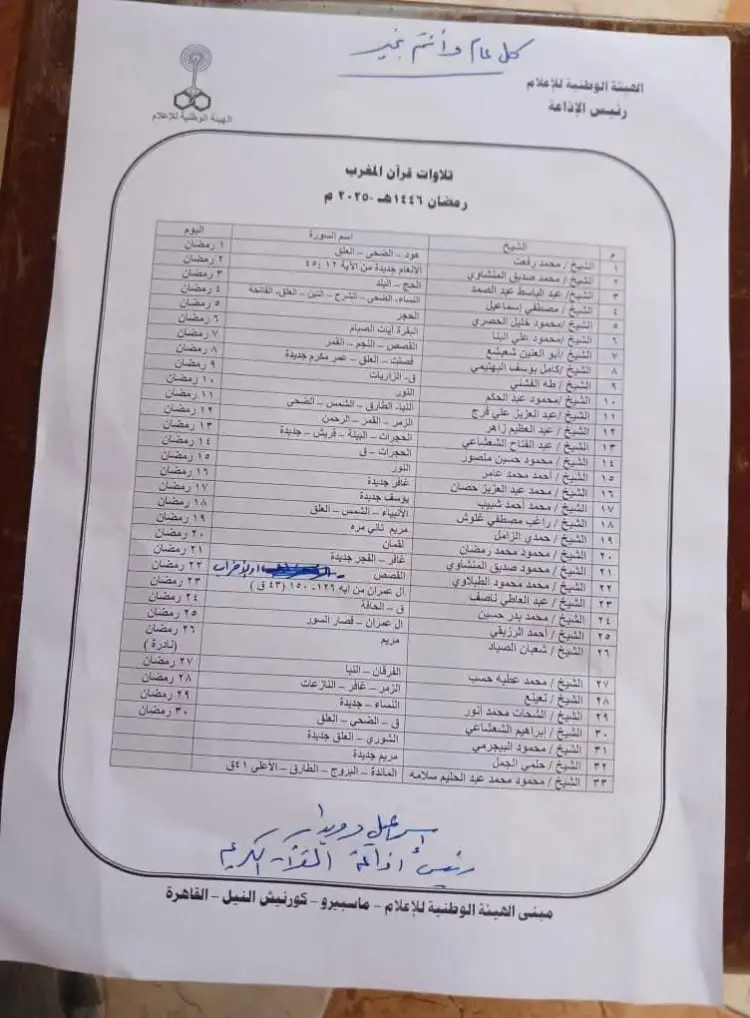 كل عام وأنتم بخير
الهيئة الوطنية للإعلام
رئيس الإذاعة
الهيئة الوطنية للإعلام
تلاوات قرآن المغرب
رمضان ١٤٤٦هـ -٢٠٢٥ م
م الشيخ اسم السورة اليوم
١ الشيخ / محمد رفعت هود – الضحى – العلق ١ رمضان
٢ الشيخ / محمد صديق المنشاوي الأنعام جديدة من الآية ١٢ :٤٥ ٢ رمضان
٣ الشيخ/ عبد الباسط عبد الصمد الحج – البلد ٣ رمضان
٤ الشيخ / مصطفي إسماعيل النساء- الضحى – الشرح – التين – العلق- الفاتحة ٤ رمضان
٥ الشيخ /محمود خليل الحصري الحجر ٥ رمضان
٦ الشيخ / محمود علي البنا البقرة آيات الصيام ٦ رمضان
٧ الشيخ /أبو العنين شعيشع القصص – النجم – القمر ٧ رمضان
٨ الشيخ /كامل يوسف البهتيمي فصلت – العلق – عمر مكرم جديدة ٨ رمضان
٩ الشيخ / طه الفشني ق- الزاريات ٩ رمضان
١٠ الشيخ /محمود عبد الحكم النور ١٠ رمضان
١١ الشيخ /عبد العزيز علي فرج النبا- الطارق – الشمس – الضحى ١١ رمضان
١٢ الشيخ / عبد العظيم زاهر الزمر – القمر – الرحمن ١٢ رمضان
١٣ الشيخ / عبد الفتاح الشعشاعي الحجرات – البينة – قريش – جديدة ١٣ رمضان
١٤ الشيخ / محمود حسين منصور الحجرات – ق ١٤ رمضان
١٥ الشيخ / أحمد محمد عامر النور ١٥ رمضان
١٦ الشيخ / محمد عبد العزيز حصان غافر جديدة ١٦ رمضان
١٧ الشيخ / محمد أحمد شبيب يوسف جديدة ١٧ رمضان
١٨ الشيخ / راغب مصطفي غلوش الأنبياء – الشمس – العلق ١٨ رمضان
١٩ الشيخ / حمدي الزامل مريم تاني مره ١٩ رمضان
٢٠ الشيخ / محمود محمد رمضان لقمان ٢٠ رمضان
٢١ الشيخ / محمود صديق المنشاوي غافر – الفجر جديدة ٢١ رمضان
٢٢ الشيخ / محمد محمود الطبلاوي القصص – ٢٢ رمضان
٢٣ الشيخ / عبد العاطي ناصف آل عمران من آيه ١٢٦- ١٥٠ (٤٣ ق ) ٢٣ رمضان
٢٤ الشيخ / محمد بدر حسين ق – الحاقة ٢٤ رمضان
٢٥ الشيخ / أحمد الرزيقي آل عمران – قصار السور ٢٥ رمضان
٢٦ الشيخ / شعبان الصياد مريم ٢٦ رمضان
(نادرة )
٢٧ الشيخ / محمد عطيه حسب الفرقان – النبا ٢٧ رمضان
٢٨ الشيخ / نعينع الزمر – غافر – النازعات ٢٨ رمضان
٢٩ الشيخ / الشحات محمد أنور النساء – جديدة ٢٩ رمضان
٣٠ الشيخ / إبراهيم الشعشاعي ق – الضحي – العلق ٣٠ رمضان
٣١ الشيخ / محمود البيجرمي الشوري – العلق جديدة
٣٢ الشيخ / حلمي الجمل مريم جديدة
٣٣ الشيخ / محمود محمد عبد الحليم سلامه المائدة – البروج – الطارق – الأعلى ٤١ق
إسماعيل دويدار
رئيس إذاعة القرآن الكريم
مبنى الهيئة الوطنية للإعلام – ماسبيرو – كورنيش النيل – القاهرة